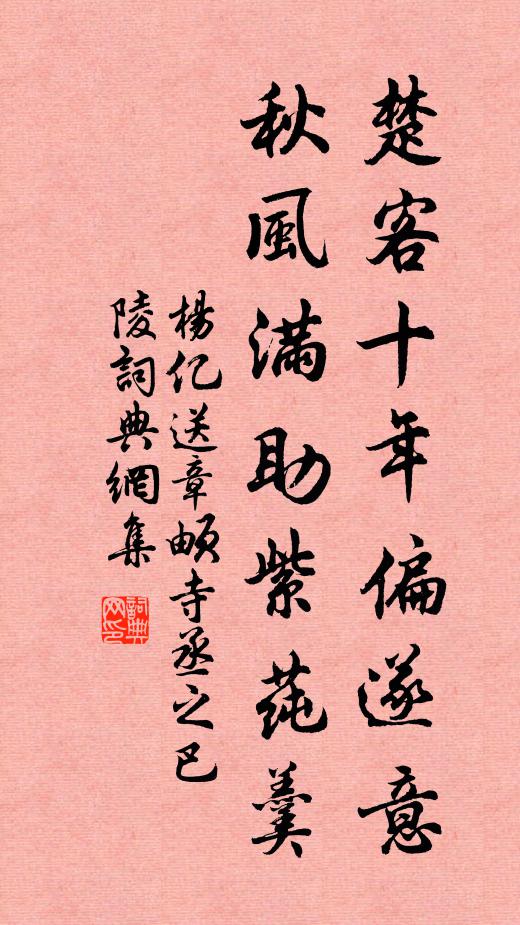 楚客十年偏遂意
秋風滿助紫莼羹
楊亿送章頔寺丞之巴
陵詞典網集
詞典网印